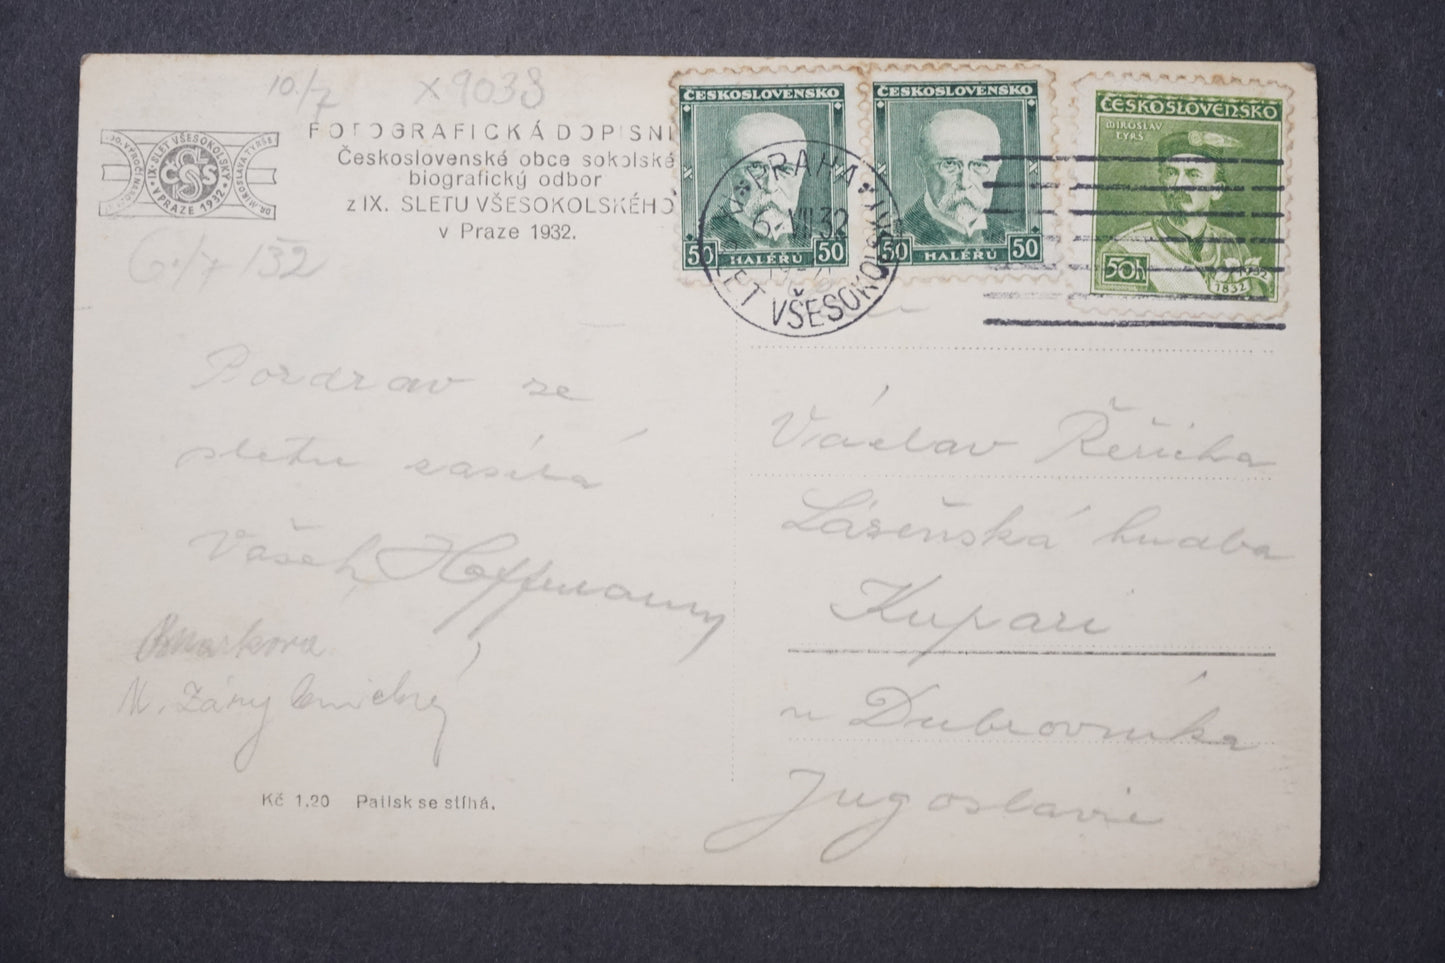 10./7 X 9038
FOTOGRAFICKÁ DOPISNI
Československé obce sokolské
biografický odbor
z IX. SLETU VŠESOKOLSKÉHO
v Praze 1932.
IX. SLET VŠESOKOLSKÝ
ČOS
V PRAZE 1932
DR. MIROSLAVA TYRŠE
6./7 132
ČESKOSLOVENSKO
50 HALÉŘŮ 50
ČESKOSLOVENSKO
50 HALÉŘŮ 50
ČESKOSLOVENSKO
MIROSLAV
TYRŠ
50h
1832 1932
PRAHA
6. VII. 32
SLET VŠESOKOLSKÝ
Pozdrav ze
sletu zasílá
Vašek Hoffmann
Kč 1.20 Patisk se stíhá.
Václav Řeřicha
Lázeňská hudba
Kupari
u Dubrovníka
Jugoslavie